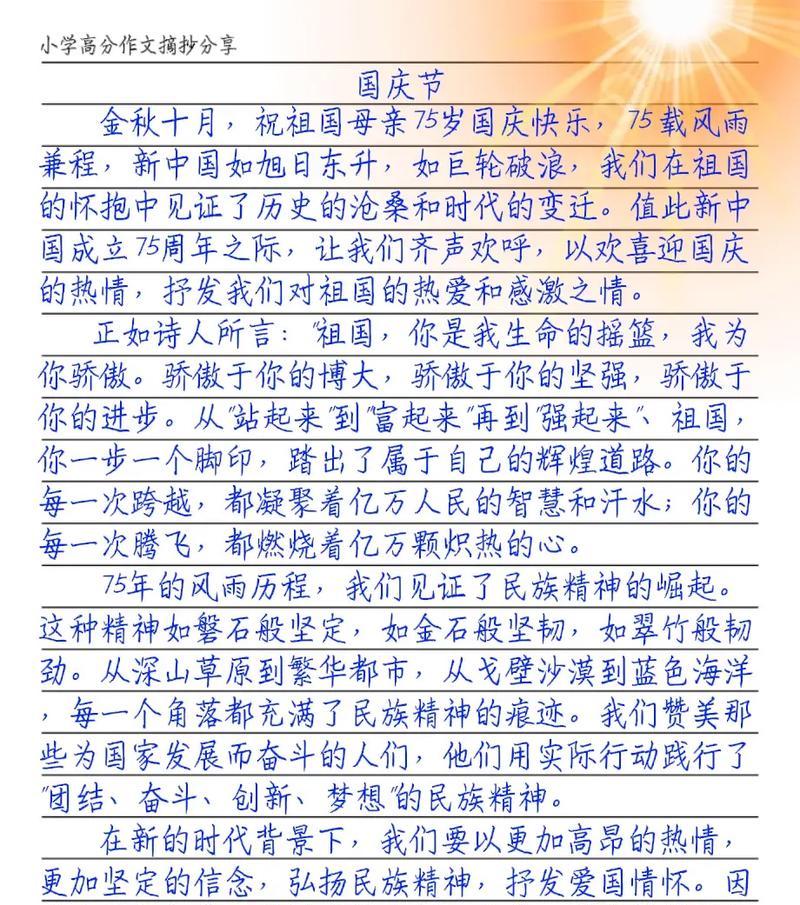 小学高分作文摘抄分享
国庆节
金秋十月，祝祖国母亲75岁国庆快乐，75载风雨
兼程，新中国如旭日东升，如巨轮破浪，我们在祖国
的怀抱中见证了历史的沧桑和时代的变迁。值此新中
国成立75周年之际，让我们齐声欢呼，以欢喜迎国庆
的热情，抒发我们对祖国的热爱和感激之情。
正如诗人所言："祖国，你是我生命的摇篮，我为
你骄傲。骄傲于你的博大，骄傲于你的坚强，骄傲于
你的进步。从"站起来"到"富起来"再到"强起来"、祖国，
你一步一个脚印，踏出了属于自己的辉煌道路。你的
每一次跨越，都凝聚着亿万人民的智慧和汗水；你的
每一次腾飞，都燃烧着亿万颗炽热的心。
75年的风雨历程，我们见证了民族精神的崛起。
这种精神如磐石般坚定，如金石般坚韧，如翠竹般韧
劲。从深山草原到繁华都市，从戈壁沙漠到蓝色海洋
，每一个角落都充满了民族精神的痕迹。我们赞美那
些为国家发展而奋斗的人们，他们用实际行动践行了
"团结、奋斗、创新、梦想"的民族精神。
在新的时代背景下，我们要以更加高昂的热情，
更加坚定的信念，弘扬民族精神，抒发爱国情怀。因